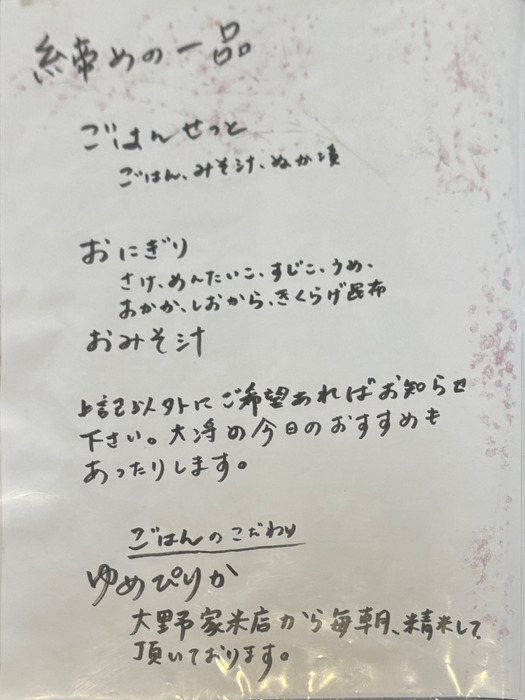 締めの一品
ごはんせっと
ごはん、みそ汁、ぬか漬
おにぎり
さけ、めんたいこ、すじこ、うめ、
おかか、しおから、きくらげ昆布
おみそ汁
上記以外にご希望あればお知らせ
下さい。大将の今日のおすすめも
あったりします。
ごはんのこだわり
ゆめぴりか
大野家米店から毎朝、精米して
頂いております。